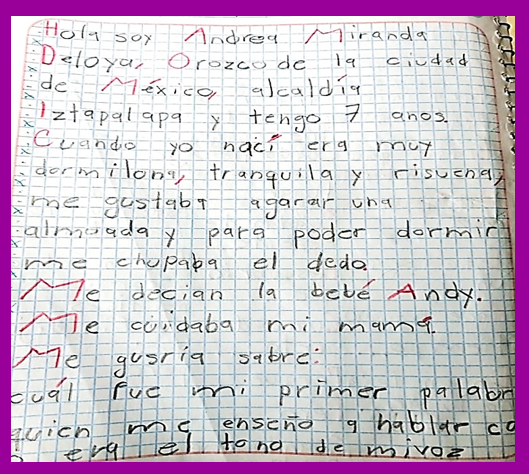 Hola soy Andrea Miranda
Deloya, Orozco de la ciudad
de México, alcaldía
Iztapalapa y tengo 7 anos.
Cuando yo nací era muy
dormilona, tranquila y risuena,
me gustaba agarar una
almuada y para poder dormir
me chupaba el dedo
Me decian la bebé Andy.
Me cuidaba mi mamá.
Me gusria sabre:
cuál fue mi primer palabr
quien me enseño a hablar co
era el tono de mivoz